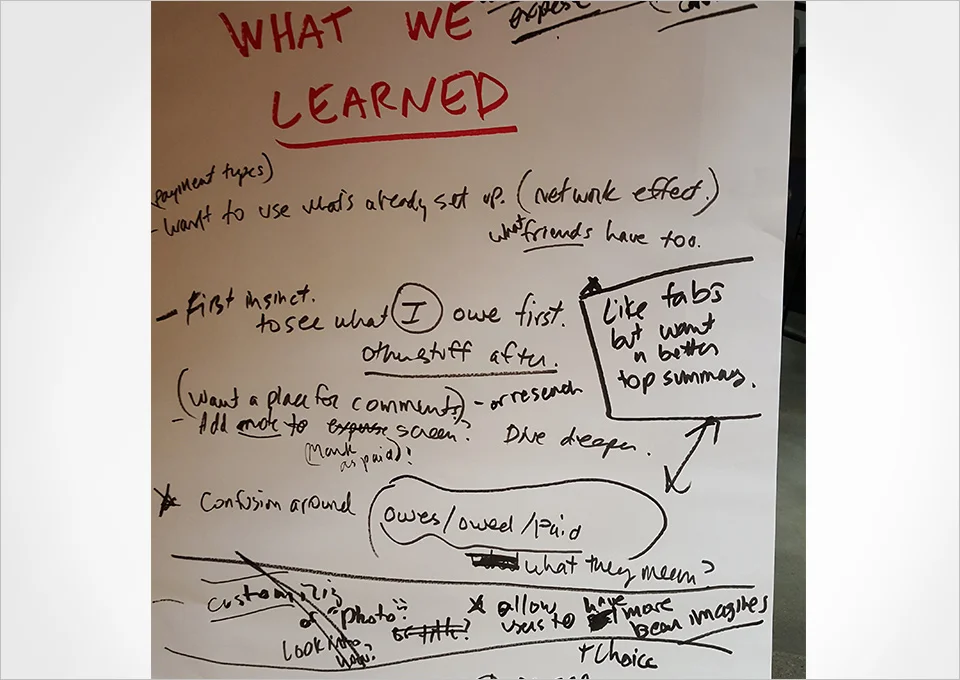 WHAT WE
expose
LEARNED
(payment types)
- Want to use what's already set up. (network effect.)
what friends have too.
- First insinct.
to see what I owe first.
other stuff after.
Like tabs
but want
a better
top summary.
(Want a place for comments.) - or research
- Add note to expense screen? Dive deeper.
(Mark as paid)!
Confusion around owes/owed/paid
what they mean?
customizing
of "photo"
or title?
look into
how?
allow
users to have more
Bean images
+ Choice